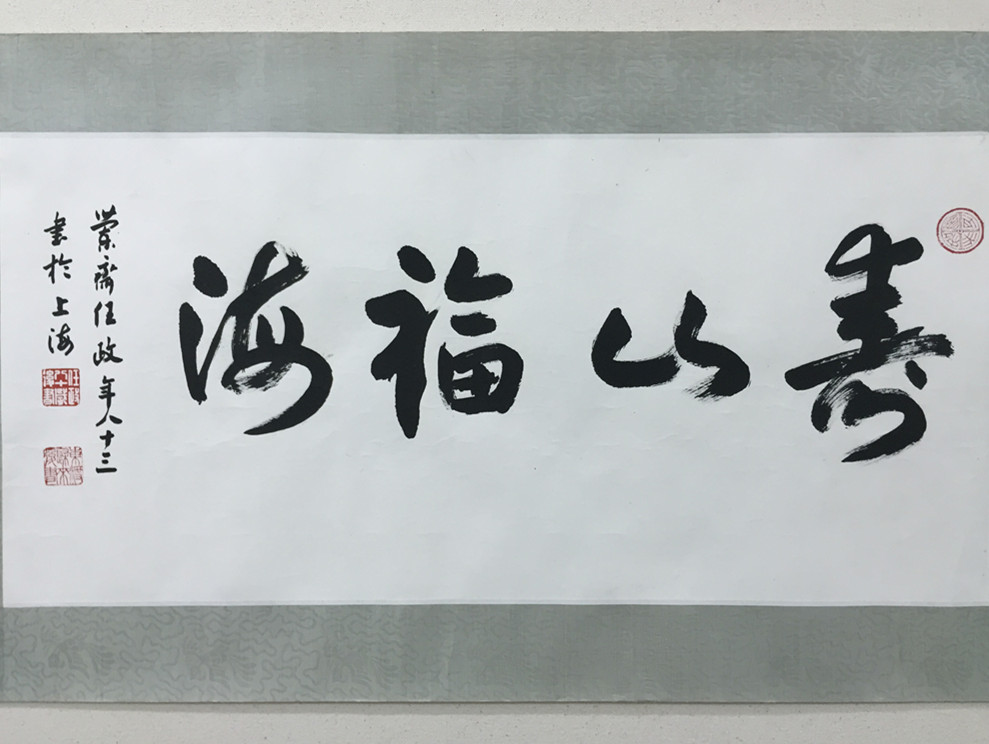 寿山福海
蘭齋任政年八十三
書於上海